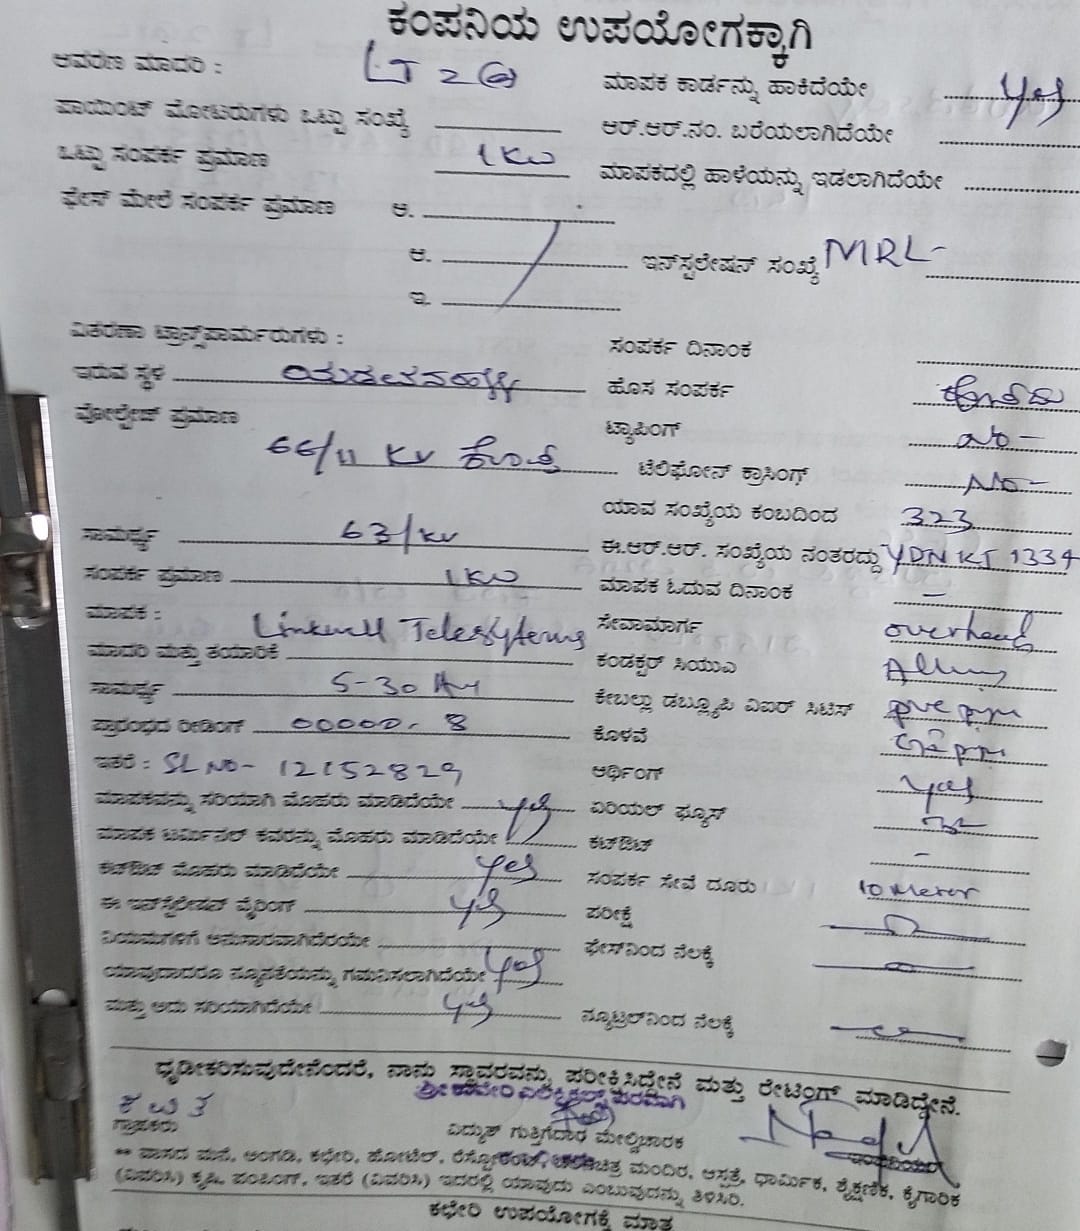 ಕಂಪನಿಯ ಉಪಯೋಗಕ್ಕಾಗಿ
ಆವರಣ ಮಾದರಿ : LT 2 ಮಾಪಕ ಕಾರ್ಡನ್ನು ಹಾಕಿದೆಯೇ Yes
ಪಾಯಿಂಟ್ ಮೋಟರುಗಳು ಒಟ್ಟು ಸಂಖ್ಯೆ ಆರ್.ಆರ್.ನಂ. ಬರೆಯಲಾಗಿದೆಯೇ
ಒಟ್ಟು ಸಂಪರ್ಕ ಪ್ರಮಾಣ 1 KW ಮಾಪಕದಲ್ಲಿ ಹಾಳೆಯನ್ನು ಇಡಲಾಗಿದೆಯೇ
ಫೇಸ್ ಮೇಲೆ ಸಂಪರ್ಕ ಪ್ರಮಾಣ ಅ.
ಆ. ಇನ್‌ಸ್ಟಲೇಷನ್ ಸಂಖ್ಯೆ MRL-
ಇ.
ವಿತರಣಾ ಟ್ರಾನ್ಸ್‌ಪಾರ್ಮರುಗಳು : ಸಂಪರ್ಕ ದಿನಾಂಕ
ಇರುವ ಸ್ಥಳ ಹೊಸ ಸಂಪರ್ಕ
ವೋಲ್ಟೇಜ್ ಪ್ರಮಾಣ ಟ್ಯಾಪಿಂಗ್ No-
66/11 KV ಟೆಲಿಫೋನ್ ಕ್ರಾಸಿಂಗ್ No-
ಯಾವ ಸಂಖ್ಯೆಯ ಕಂಬದಿಂದ 323
ಸಾಮರ್ಥ್ಯ 63/KV ಈ.ಆರ್.ಆರ್. ಸಂಖ್ಯೆಯ ನಂತರದ್ದು YDNKJ 1334
ಸಂಪರ್ಕ ಪ್ರಮಾಣ 1KW ಮಾಪಕ ಓದುವ ದಿನಾಂಕ -
ಮಾಪಕ : Linkwell Telesytems ಸೇವಾಮಾರ್ಗ overhead
ಮಾದರಿ ಮತ್ತು ತಯಾರಿಕೆ ಕಂಡಕ್ಟರ್ ಸಿಯುಎ
ಸಾಮರ್ಥ್ಯ 5-30 ಕೇಬಲ್ಲು ಡಬ್ಲ್ಯೂಪಿ ವಿಐಆರ್ ಸಿಟಿಸ್
ಪ್ರಾರಂಭದ ರೀಡಿಂಗ್ 00000.8 ಕೊಳವೆ
ಇತರೆ : SL NO- 12152829 ಆರ್ಥಿಂಗ್ Yes
ಮಾಪಕವನ್ನು ಸರಿಯಾಗಿ ಮೊಹರು ಮಾಡಿದೆಯೇ yes ಏರಿಯಲ್ ಫ್ಯೂಸ್
ಮಾಪಕ ಟರ್ಮಿನಲ್ ಕವರನ್ನು ಮೊಹರು ಮಾಡಿದೆಯೇ ಕಟ್‌ಔಟ್ -
ಕಟ್‌ಔಟ್ ಮೊಹರು ಮಾಡಿದೆಯೇ yes ಸಂಪರ್ಕ ಸೇವೆ ದೂರು 10 Meter
ಈ ಇನ್‌ಸ್ಟಲೇಷನ್ ವೈರಿಂಗ್ yes ಪರೀಕ್ಷೆ
ನಿಯಮಗಳಿಗೆ ಅನುಸಾರವಾಗಿದೆರೆಯೇ ಫೇಸ್‌ನಿಂದ ನೆಲಕ್ಕೆ
ಯಾವುದಾದರೂ ನ್ಯೂನತೆಯನ್ನು ಗಮನಿಸಲಾಗಿದೆಯೇ yes
ಮತ್ತು ಅದು ಸರಿಯಾಗಿದೆಯೇ yes ನ್ಯೂಟ್ರಲ್‌ನಿಂದ ನೆಲಕ್ಕೆ
ಧೃಡೀಕರಿಸುವುದೇನೆಂದರೆ, ನಾನು ಸ್ಥಾವರವನ್ನು ಪರೀಕ್ಷಿಸಿದ್ದೇನೆ ಮತ್ತು ರೇಟಿಂಗ್ ಮಾಡಿದ್ದೇನೆ.
ಶ್ರೀ ಕಾವೇರಿ ಎಲೆಕ್ಟ್ರಿಕಲ್ಸ್ ಪರವಾಗಿ
ಕವಿತ
ಗ್ರಾಹಕರು ವಿದ್ಯುತ್ ಗುತ್ತಿಗೆದಾರ ಮೇಲ್ವಿಚಾರಕ ಇಂಜಿನಿಯರ್
** ವಾಸದ ಮನೆ, ಅಂಗಡಿ, ಕಛೇರಿ, ಹೋಟೆಲ್, ರೆಸ್ಟೋರೆಂಟ್, ಚಲನಚಿತ್ರ ಮಂದಿರ, ಆಸ್ಪತ್ರೆ, ಧಾರ್ಮಿಕ, ಶೈಕ್ಷಣಿಕ, ಕೈಗಾರಿಕ
(ವಿವರಿಸಿ) ಕೃಷಿ, ಪಂಪಿಂಗ್, ಇತರೆ (ವಿವರಿಸಿ) ಇದರಲ್ಲಿ ಯಾವುದು ಎಂಬುವುದನ್ನು ತಿಳಿಸಿರಿ.
ಕಛೇರಿ ಉಪಯೋಗಕ್ಕೆ ಮಾತ್ರ